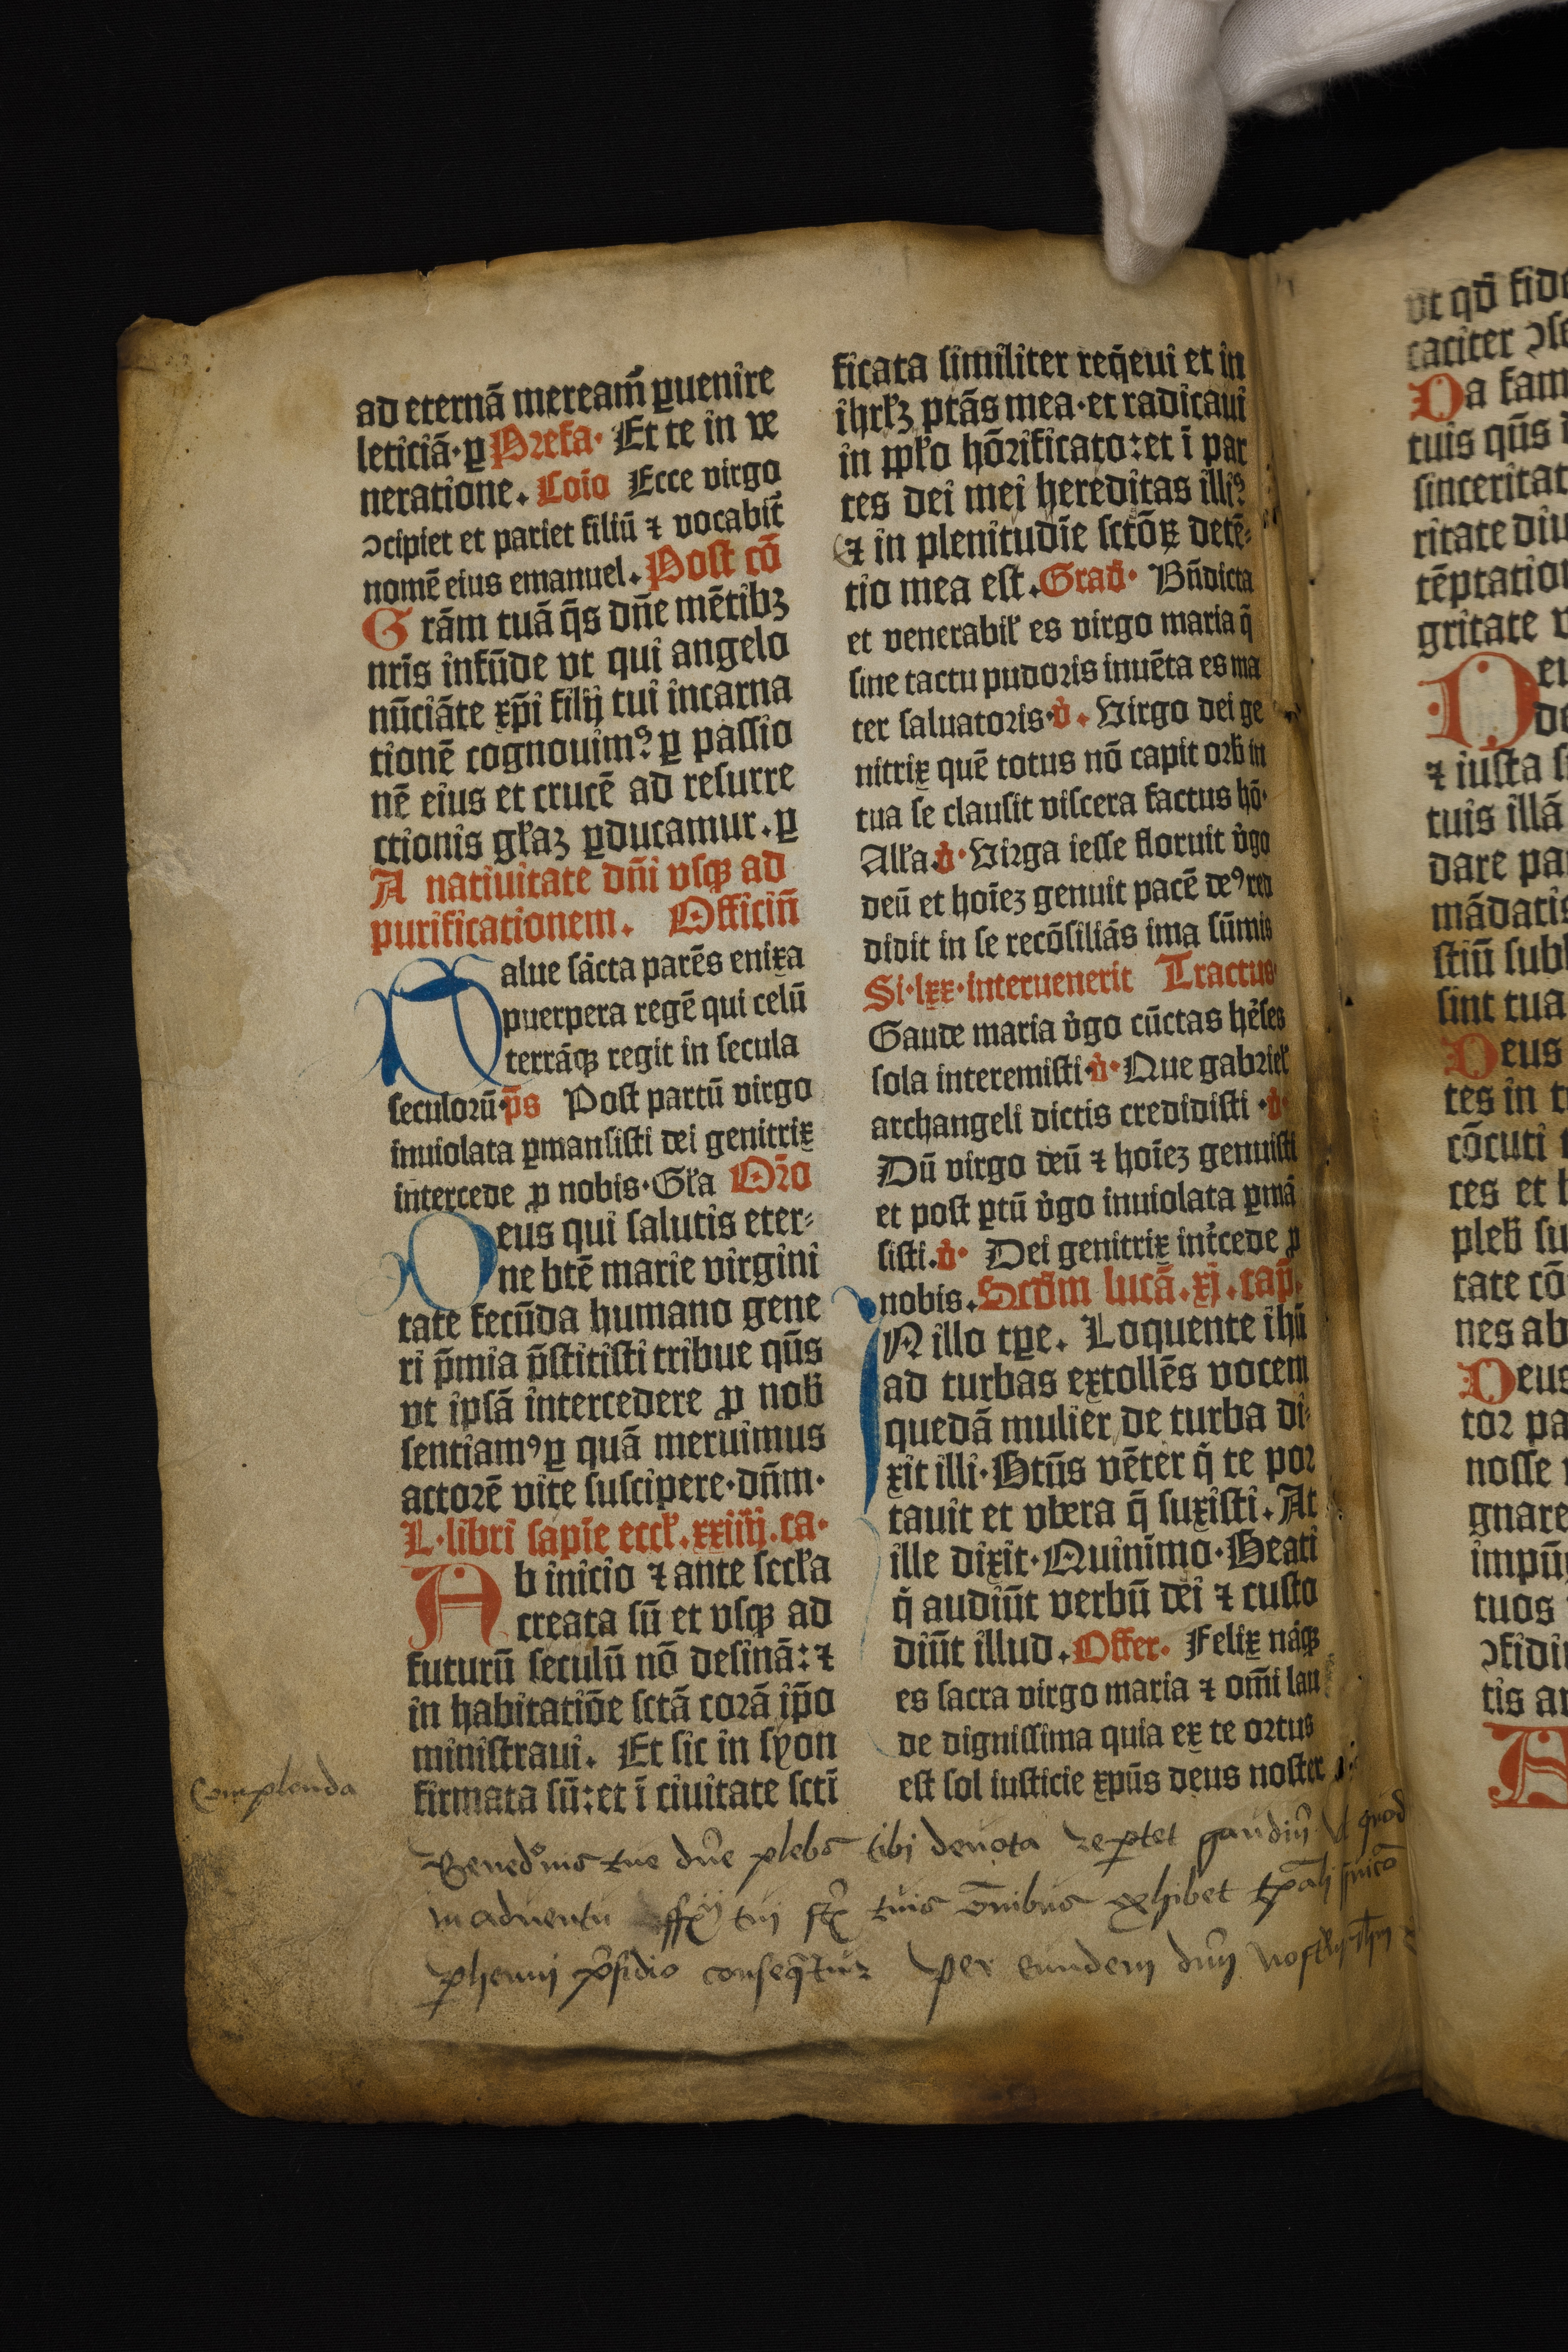 ad eternā mereaɱ̄ ꝑuenire
leticiā·ꝑ Prefa· Et te in ve
neratione. Coīo Ecce virgo
ↄcipiet et pariet filiū ⁊ vocabit̄
nomē eius emanuel. Post cō
Grām tuā q̄s dn̄e mētibꝫ
nrīs infūde vt qui angelo
nūciāte xp̄i filij tui incarna
tionē cognouimꝰ ꝑ passio
nē eius et crucē ad resurre
ctionis gl̄aꝫ ꝑducamur. ꝑ
A natiuitate dn̄i vsqꝫ ad
purificationem. Officiū
Salue sācta parēs enixa
puerpera regē qui celū
terrāqꝫ regit in secula
seculorū·p̄s Post partū virgo
inuiolata ꝑmansisti dei genitrix
intercede ꝓ nobis·Gl̄a Orō
Deus qui salutis eter-
ne btē marie virgini
tate fecūda humano gene
ri p̄mia p̄stitisti tribue qūs
vt ipsā intercedere ꝓ nob̄
sentiamꝰ ꝑ quā meruimus
actorē vite suscipere·dn̄m·
L·libri sapīe eccl̄.xxiiij.ca·
Ab inicio ⁊ ante seccl̄a
creata sū et vsqꝫ ad
futurū seculū nō desinā:⁊
in habitatiōe sctā corā ip̄o
ministraui. Et sic in syon
firmata sū:et ī ciuitate sctī
ficata similiter req̄eui et in
ihrl̄ꝫ ptās mea·et radicaui
in ppl̄o hōrificato:et ī par
tes dei mei hereditas illiꝰ
⁊ in plenitudīe sctōꝝ detē-
tio mea est. Grad̄· Bn̄dicta
et venerabil̄ es virgo maria q̄
sine tactu pudoris inuēta es ma
ter saluatoris·v̄. Virgo dei ge
nitrix quē totus nō capit orb̄ in
tua se clausit viscera factus hō·
All̄a v̄·Virga iesse floruit v̇go
deū et hoīeꝫ genuit pacē deꝰ red
didit in se recōsiliās ima sūmis
Si·lxx·interuenerit Tractus
Gaude maria v̇go cūctas hėses
sola interemisti·v̇·Que gabriel̄
archangeli dictis credidisti·v̇
Dū virgo deū ⁊ hoīeꝫ genuisti
et post ꝑtū v̇go inuiolata ꝑmā
sisti.v̇· Dei genitrix int̄cede ꝓ
nobis. Scd̄m lucā.xj.cap̄.
IN illo tꝑe. Loquente ihū
ad turbas extollēs vocem
quedā mulier de turba di-
xit illi·Btūs vēter q̇ te por
tauit et vbera q̄ suxisti. At
ille dixit·Quinimo·Beati
q̇ audiūt verbū dei ⁊ custo
diūt illud. Offer· Felix nāqꝫ
es sacra virgo maria ⁊ om̄i lau
de dignissima quia ex te ortus
est sol iusticie xpūs deus noster
Complenda
tue dn̄e plebs tibi deuota gaudiū Vt quod
in aduentu tui tuis ōnibus exhibet
ꝑhenni p̄sidio Per eundem dn̄m
vt qd̄ fide
caciter ↄse
Da fam
tuis qūs
sinceritat
ritate diu
tēptation
gritate v
De
⁊ iusta
tuis illā
dare pa
mādatis
sub
sint tua
Deus
tes in
cōcuti
ces et
pleb̄ su
tate cō
nes ab
Deus
tor pa
nosse
gnare
impū
tuos
ↄfidi
tis a
A